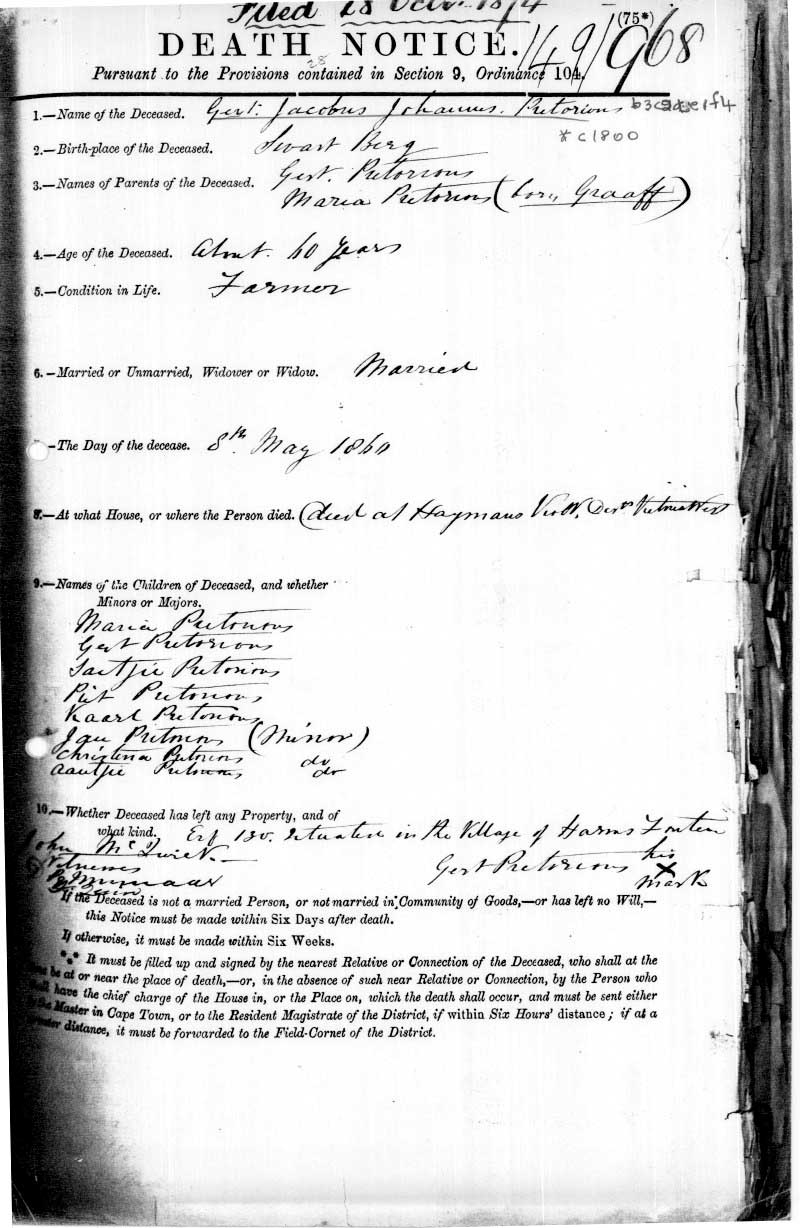 Filed 28 Octr. 1874
(75*)
DEATH NOTICE.
149/968
28
Pursuant to the Provisions contained in Section 9, Ordinance 104.
1.—Name of the Deceased. Gert. Jacobus Johannes. Pretorious b3c
* c1800
2.—Birth-place of the Deceased. Swart Berg
3.—Names of Parents of the Deceased. Gert. Pretorious
Maria Pretorious (born Graaff)
4.—Age of the Deceased. About. 60 Years
5.—Condition in Life. Farmer
6.—Married or Unmarried, Widower or Widow. Married
—The Day of the decease. 8th May 1860
8.—At what House, or where the Person died. (died at Haymans
9.—Names of the Children of Deceased, and whether
Minors or Majors.
Maria Pretorious
Gert Pretorious
Saetjie Pretorious
Piet Pretorious
Kaarl Pretorious
Jan Pretorious (Minor)
Christina Pretorious do
Pretorious do
10.—Whether Deceased has left any Property, and of
what kind. Erf situated in the Village of Harms Fontein
John
Witnesses
Gert Pretorious his
X
mark
If the Deceased is not a married Person, or not married in Community of Goods,—or has left no Will,—
this Notice must be made within Six Days after death.
If otherwise, it must be made within Six Weeks.
*** It must be filled up and signed by the nearest Relative or Connection of the Deceased, who shall at the
be at or near the place of death,—or, in the absence of such near Relative or Connection, by the Person who
shall have the chief charge of the House in, or the Place on, which the death shall occur, and must be sent either
the Master in Cape Town, or to the Resident Magistrate of the District, if within Six Hours' distance; if at a
distance, it must be forwarded to the Field-Cornet of the District.